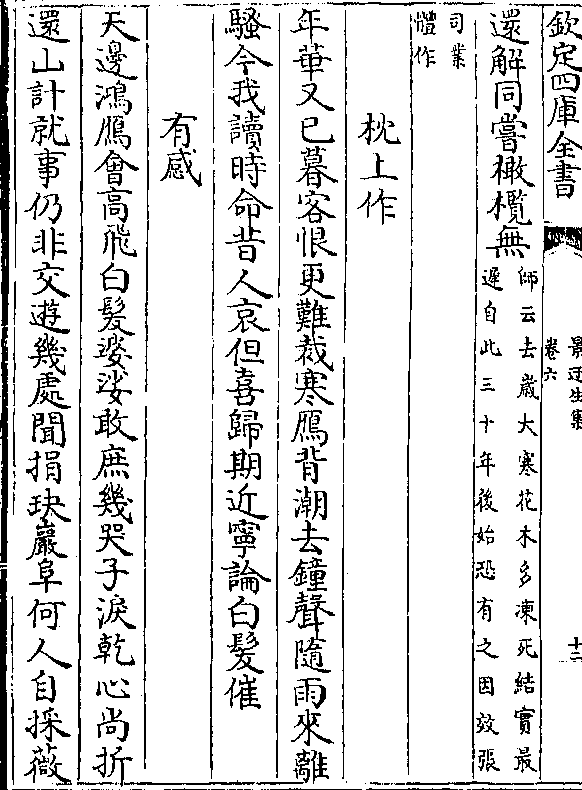 欽定四庫全書
景迂生集
卷六
十二
還解同嘗橄欖無
師云去歲大寒花木多凍死結實最
遲自此三十年後始恐有之因效張
司業
體作
枕上作
年華又已暮客恨更難裁寒鴈背潮去鐘聲隨雨來離
騷今我讀時命昔人哀但喜歸期近寧論白髮催
有感
天邊鴻鴈會高飛白髮婆娑敢庶幾哭子淚乾心尚折
還山計就事仍非交遊幾處聞捐玦巖阜何人自採薇